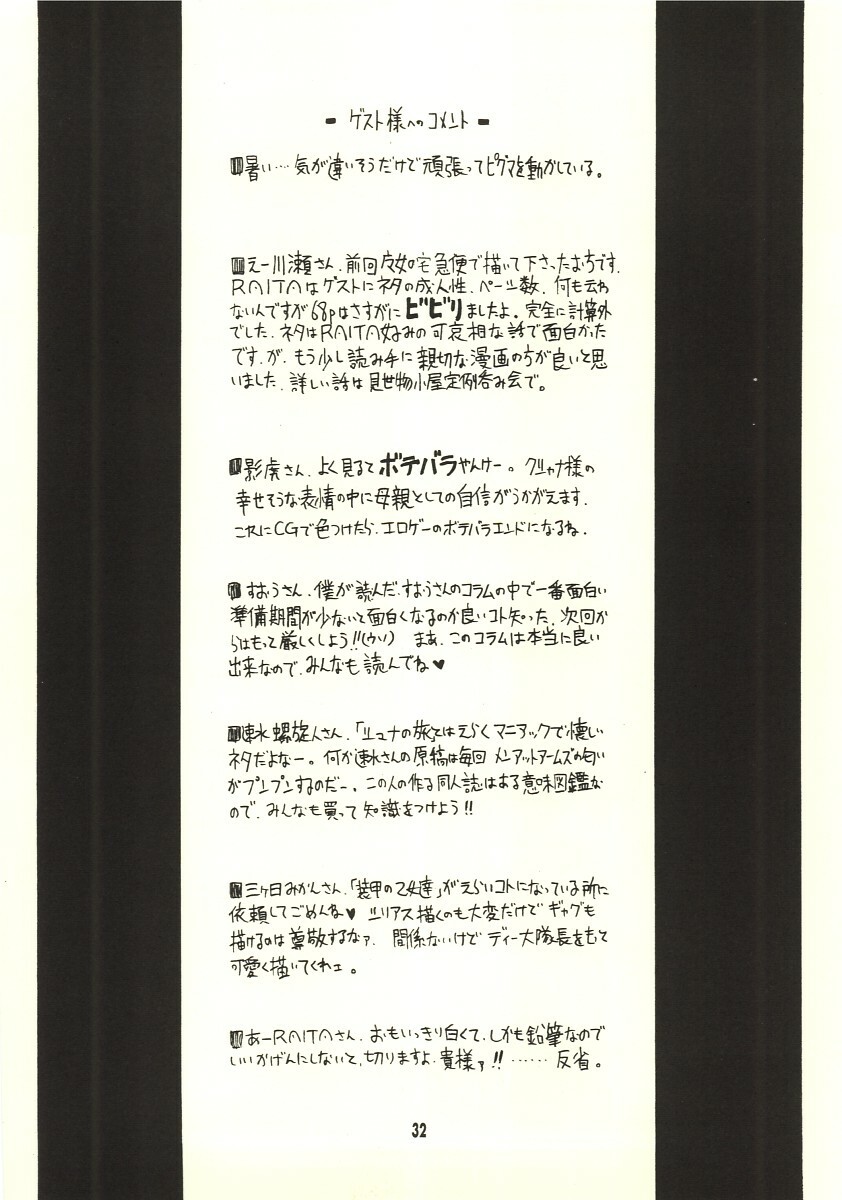 - ゲスト様へのコメント -
暑い…気が違いそうだけど頑張ってピグマを動かしている。
えー川瀬さん、前回 宅急便で描いて下さったおちです。
RAITAはゲストにネタの成人性、ページ数、何も云わ
ないんですが68pはさすがにビビりましたよ。完全に計算外
でした。ネタはRAITA好みの可哀相な話で面白かった
ですが、もう少し読み手に親切な漫画の方が良いと思
いました。詳しい話は見世物小屋定例呑み会で。
影虎さん、よく見るとボテバラやんけー。クシャナ様の
幸せそうな表情の中に母親としての自信がうかがえます。
これにCGで色つけたら、エロゲーのボテバラエンドになるね。
すおうさん、僕が読んだ、すおうさんのコラムの中で一番面白い
準備期間が少ないと面白くなるのか良いコト知った、次回か
らはもっと厳しくしよう!!(ウソ) まあ、このコラムは本当に良い
出来なので、みんなも読んでね♥
速水螺旋人さん、「シュナの旅」とはえらくマニアックで懐しい
ネタだよなー。何か速水さんの原稿は毎回 メンアットアームズの匂い
がプンプンするのだー。この人の作る同人誌はある意味図鑑な
ので、みんなも買って知識をつけよう!!
三ヶ日みかんさん、「装甲の乙女達」がえらいコトになっている所に
依頼してごめんね♥ シリアス描くのも大変だけど ギャグも
描けるのは尊敬するなァ、関係ないけど ディー大隊長をもっと
可愛く描いてくれェ。
あーRAITAさん、おもいっきり白くて、しかも鉛筆なので
いいかげんにしないと、切りますよ、貴様ァ!! …… 反省。
32